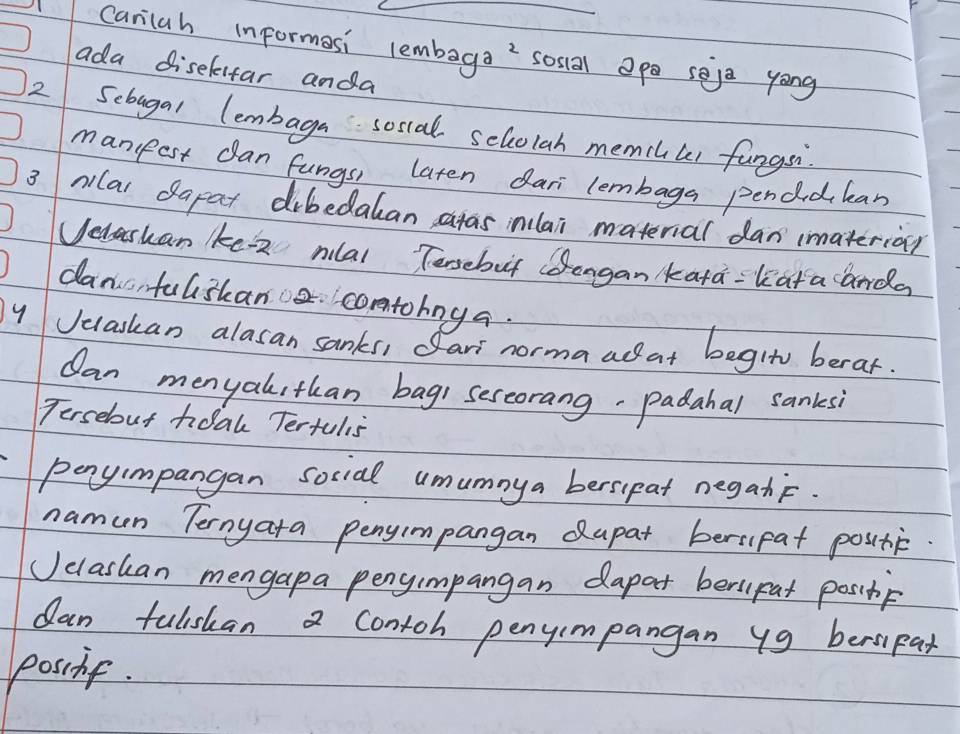 1 Carilah informasi lembaga² sosial apa saja yang
ada disekitar anda
2 Sebagai lembaga sosial sekolah memiliki fungsi.
manifest dan fungsi laten dari lembaga pendidikan
3 nilai dapat dibedakan atas nilai material dan imaterial
Jelaskan ke-2 nilai Tersebut dengan kata-kata anda
dan tuliskan 2 contohnya.
4 Jelaskan alasan sanksi dari norma adat begitu berat.
dan menyakitkan bagi seseorang. padahal sanksi
Tersebut tidak Tertulis
penyimpangan sosial umumnya bersifat negatif.
namun Ternyata penyimpangan dapat bersifat positif.
Jelaskan mengapa penyimpangan dapat bersifat positif
dan tuliskan 2 contoh penyimpangan yg bersifat
positif.